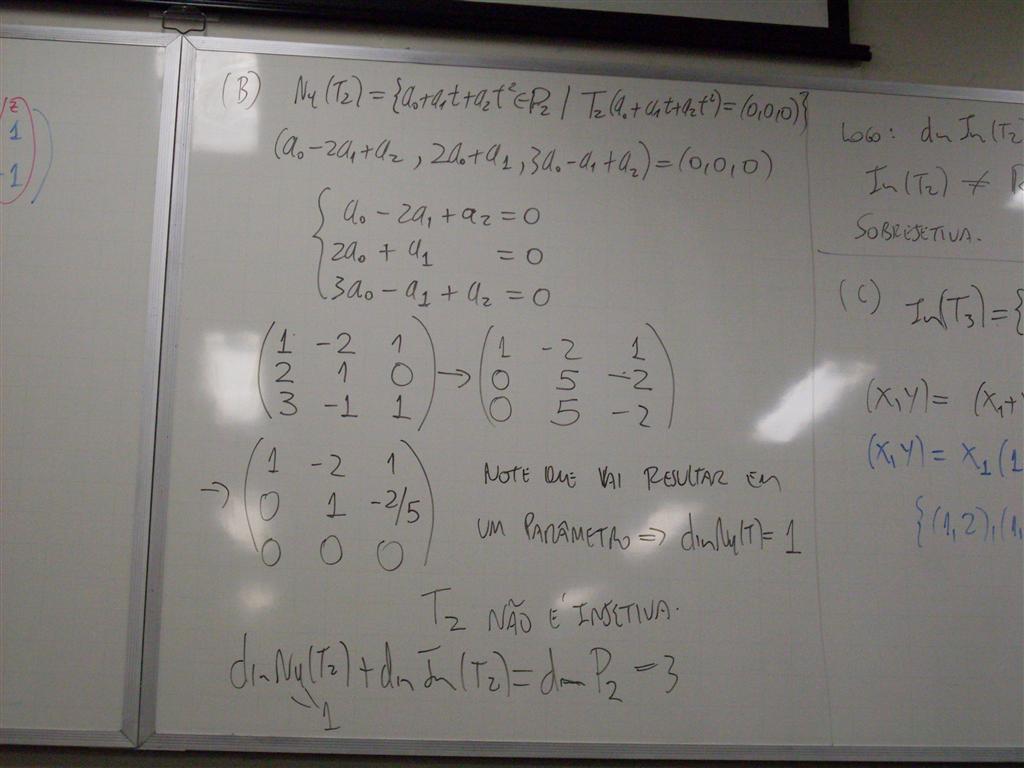 z
1
-1
(B) Nu(T₂) = {a₀+a₁t+a₂t² ∈ P₂ / T₂(a₀+a₁t+a₂t²) = (0,0,0)}
(a₀-2a₁+a₂, 2a₀+a₁, 3a₀-a₁+a₂) = (0,0,0)
{ a₀ - 2a₁ + a₂ = 0
2a₀ + a₁ = 0
3a₀ - a₁ + a₂ = 0
(1 -2 1) → (1 -2 1)
(2 1 0) (0 5 -2)
(3 -1 1) (0 5 -2)
→ (1 -2 1)
(0 1 -2/5)
(0 0 0)
NOTE QUE VAI RESULTAR EM
UM PARÂMETRO ⇒ dim Nu(T) = 1
T₂ NÃO É INJETIVA.
dim Nu(T₂) + dim Im(T₂) = dim P₂ = 3
1
LOGO: dim Im(T₂
Im(T₂) ≠
SOBREJETIVA.
(C) Im(T₃) = {
(x,y) = (x₁+
(x,y) = x₁(1
{(1,2),(1,